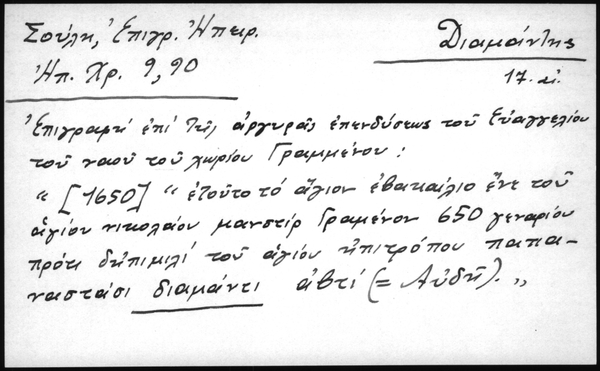 Σούλη, Ἐπιγρ. Ἠπειρ.
Ἠπ. Χρ. 9, 90
Διαμάντης
17. αἰ.
Ἐπιγραφὴ ἐπὶ τῆς ἀργυρᾶς ἐπενδύσεως τοῦ Εὐαγγελίου
τοῦ ναοῦ τοῦ χωρίου Γραμμένου:
“ [1650] “ ἐτοῦτο τό ἅγιον ἐβακαίλιο ἔνε τοῦ
ἁγίου νικολαίου μανστίρ Γραμένον 650 γεναρίου
πρότι δηπιμιλί τοῦ ἁγίου ηπιτρόπου παπα-
ναστάσι διαμάντι ἀβτί (= Αὐδῆ). „